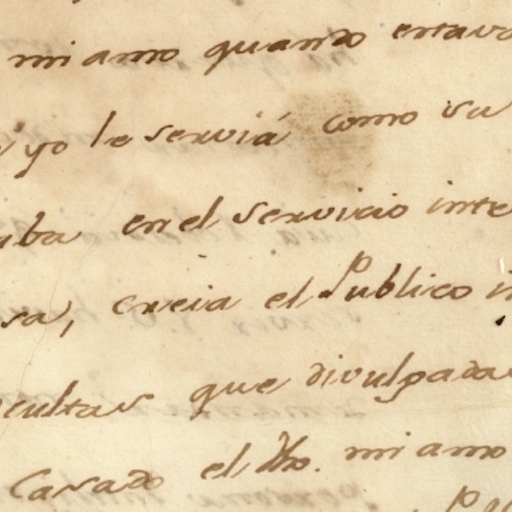 mi amo quando estava
yo le serviá como su
aba en el servicio inte
sa, creia el Publico in
ocultas que divulgadas
Casado el dho. mi amo